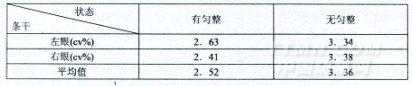 状态
条干 有匀整 无匀整
左眼(cv%) 2. 63 3. 34
右眼(cv%) 2. 41 3. 38
平均值 2. 52 3. 36